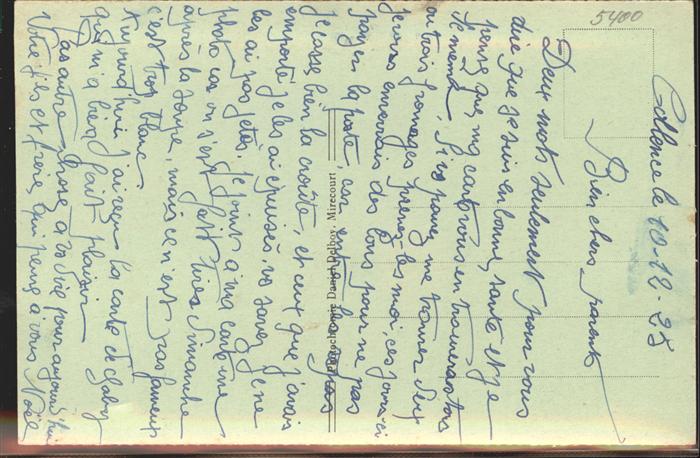 5400
Coblence le 10-12-28
Bien chers parents
Deux mots seulement pour vous
dire que je suis en bonne santé et je
pense que ma carte vous en trouvera tous
de même. Si vs pouvez me trouver deux
ou trois fromages prenez-les moi, ces jours-ci
je vous enverrais des bons pour ne pas
payer la poste, car
je casse bien la croûte, et ceux que j'avais
emporté je les ai épuisés, vs savez je ne
les ai pas jetés. Je joint à ma carte une
photo qu'on s'est fait tirés Dimanche
après la soupe, mais ce n'est pas fameux
c'est trop blanc.
Aujourd'hui j'ai reçu la carte de Gaby
qui m'a bien fait plaisir
Pas autre chose à vs dire pour aujourd'hui
Votre fils et frère qui pense à vous Noël
Photochromie Daniel Delboy, Mirecourt